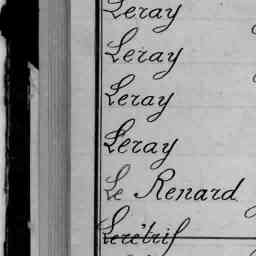 Leray
Leray
Leray
Leray
Le Renard
Lerétrif